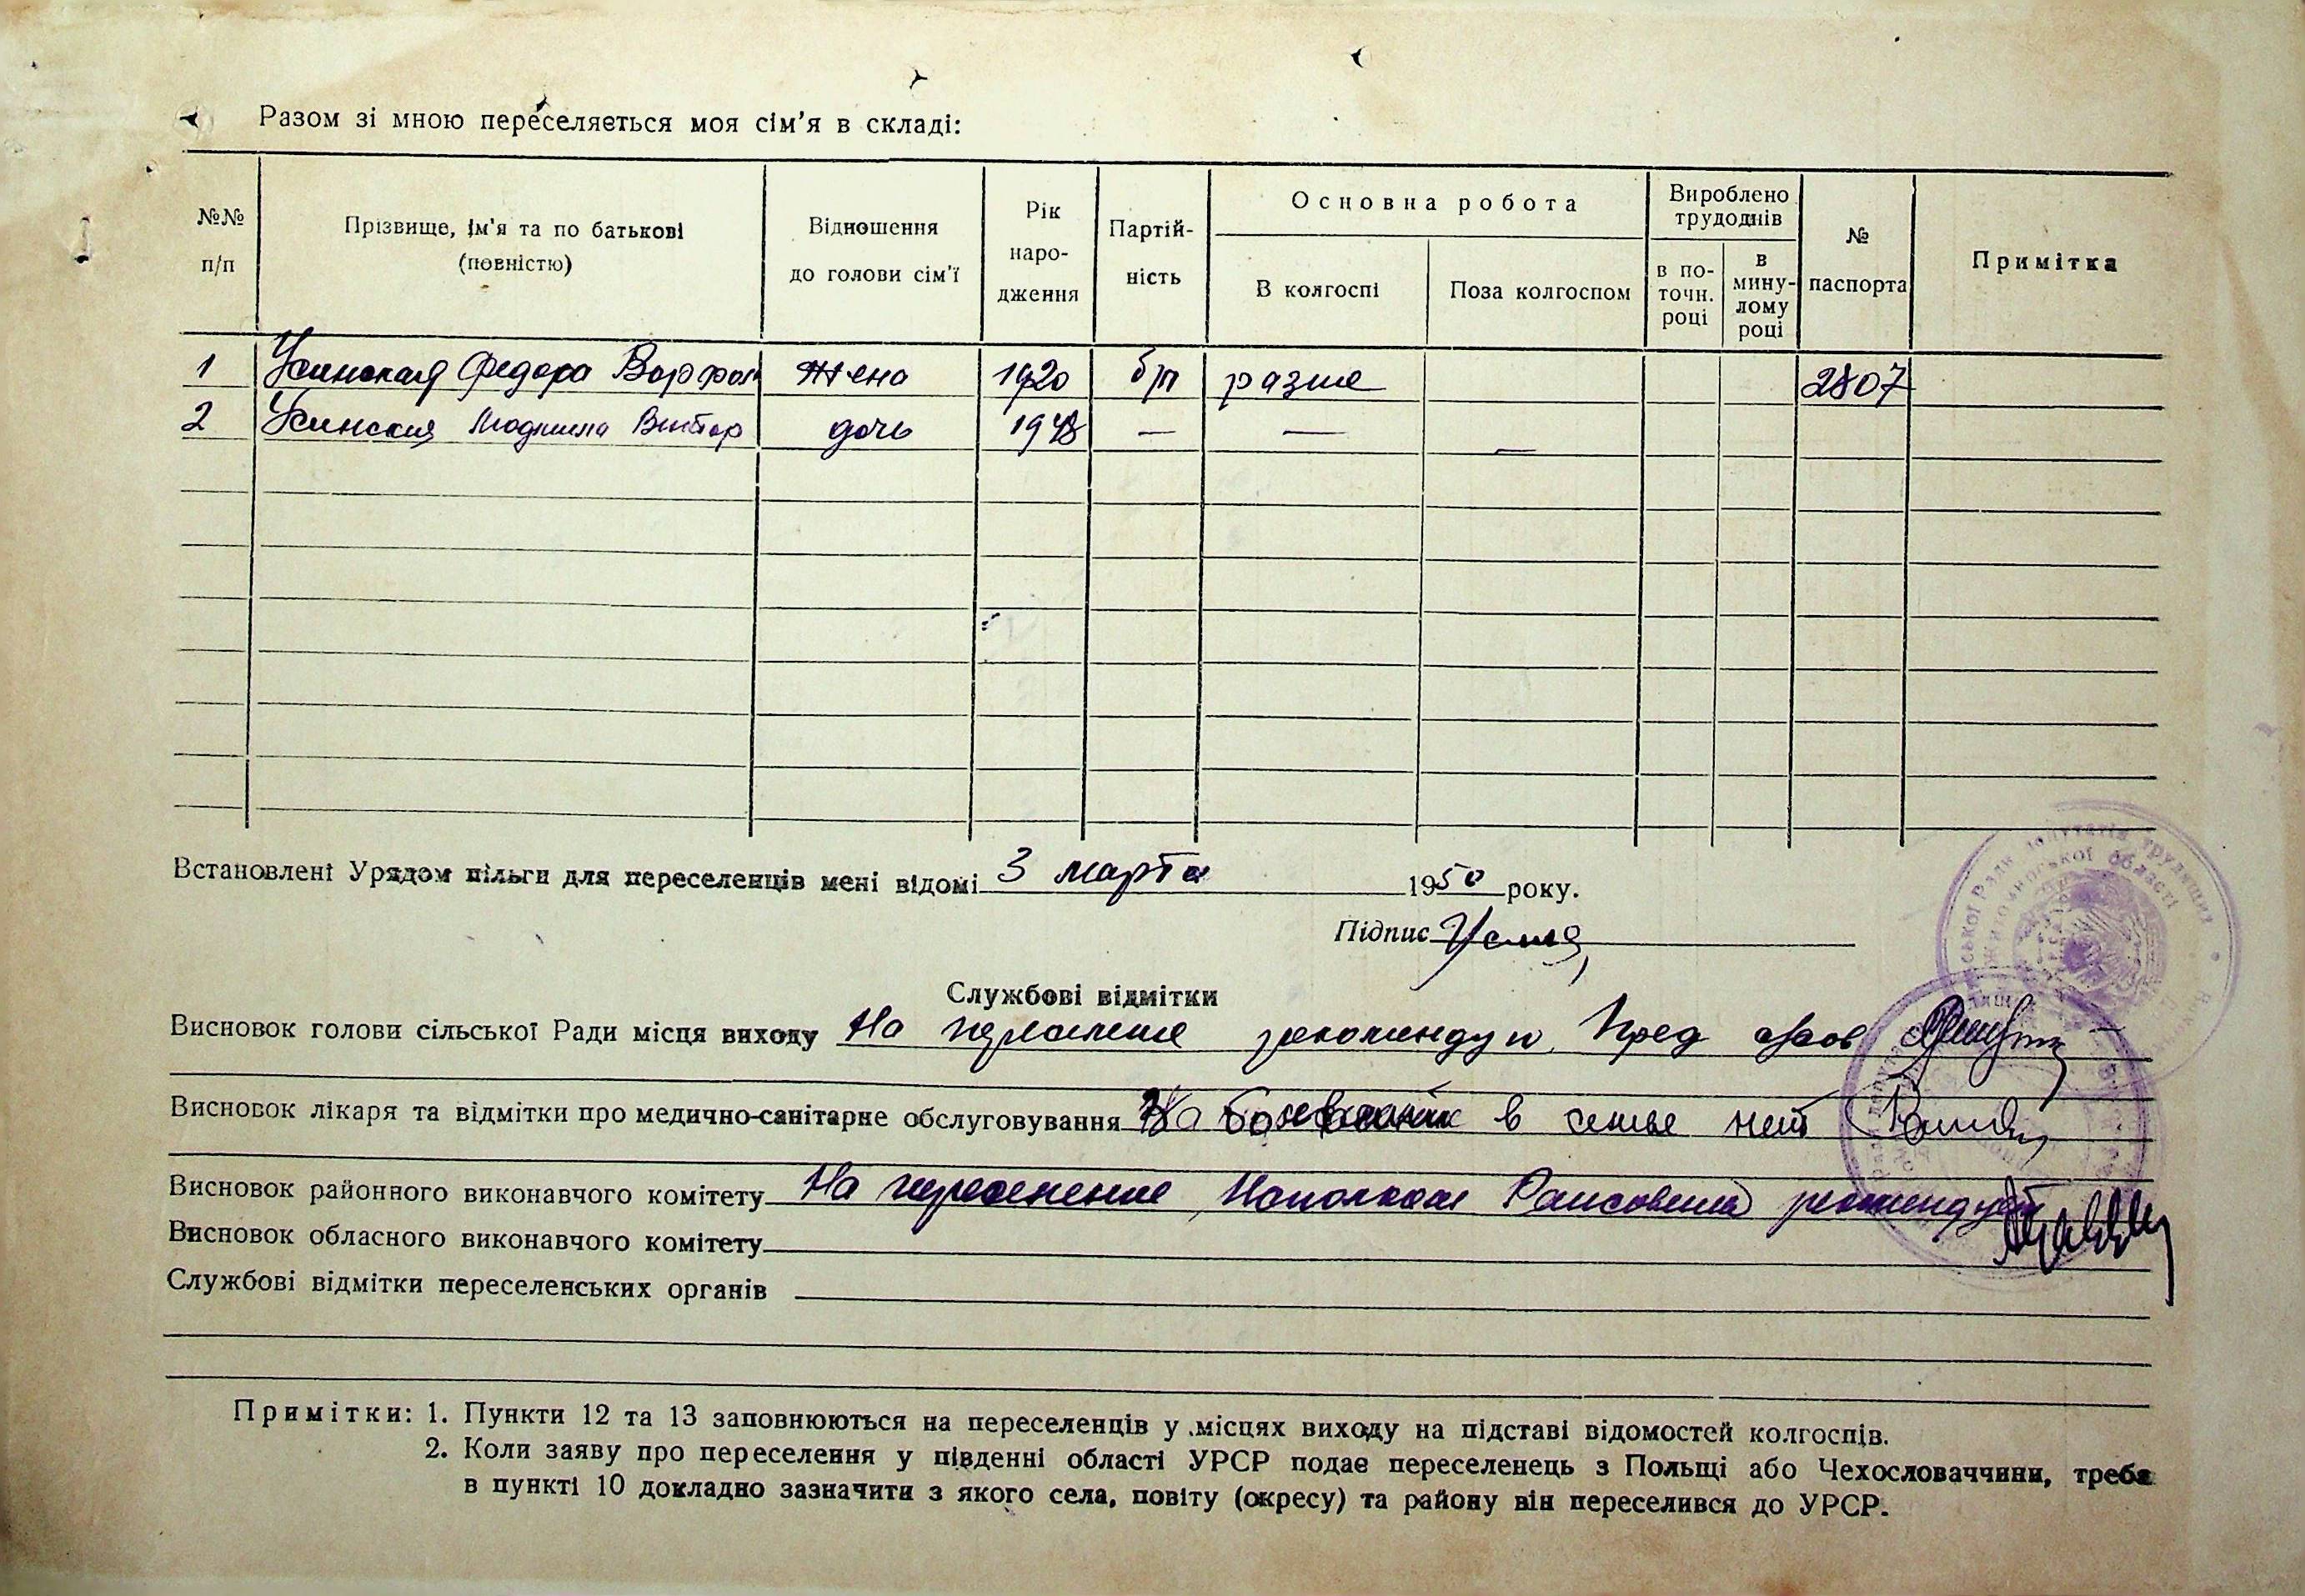 Разом зі мною переселяється моя сім'я в складі:
№№ п/п
Прізвище, ім'я та по батькові (повністю)
Відношення до голови сім'ї
Рік народження
Партійність
Основна робота
В колгоспі
Поза колгоспом
Вироблено трудоднів
в поточн. році
в минулому році
№ паспорта
Примітка
1 Усинская Федора Ворфол жена 1920 б/п разные 2807
2 Усинская Людмила Виктор дочь 1948 — — —
Встановлені Урядом пільги для переселенців мені відомі 3 марта 1950 року.
Підпис
Службові відмітки
Висновок голови сільської Ради місця виходу На рекомендую. Пред
Висновок лікаря та відмітки про медично-санітарне обслуговування в семье нет
Висновок районного виконавчого комітету На переселение Исполком Райсовета рекомендует
Висновок обласного виконавчого комітету
Службові відмітки переселенських органів
Примітки: 1. Пункти 12 та 13 заповнюються на переселенців у місцях виходу на підставі відомостей колгоспів.
2. Коли заяву про переселення у південні області УРСР подає переселенець з Польщі або Чехословаччини, треба
в пункті 10 докладно зазначити з якого села, повіту (окресу) та району він переселився до УРСР.